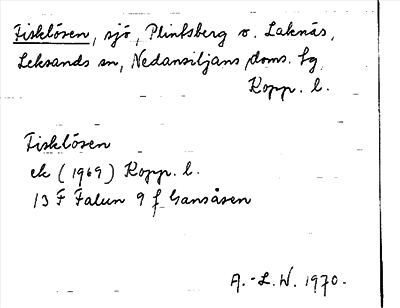 Fisklösen, sjö, Plintsberg o. Laknäs,
Leksands sn, Nedansiljans doms. fg,
Kopp. l.
Fisklösen
ek (1969) Kopp. l.
13 F Falun 9 f Gansåsen
A.-L.W. 1970.